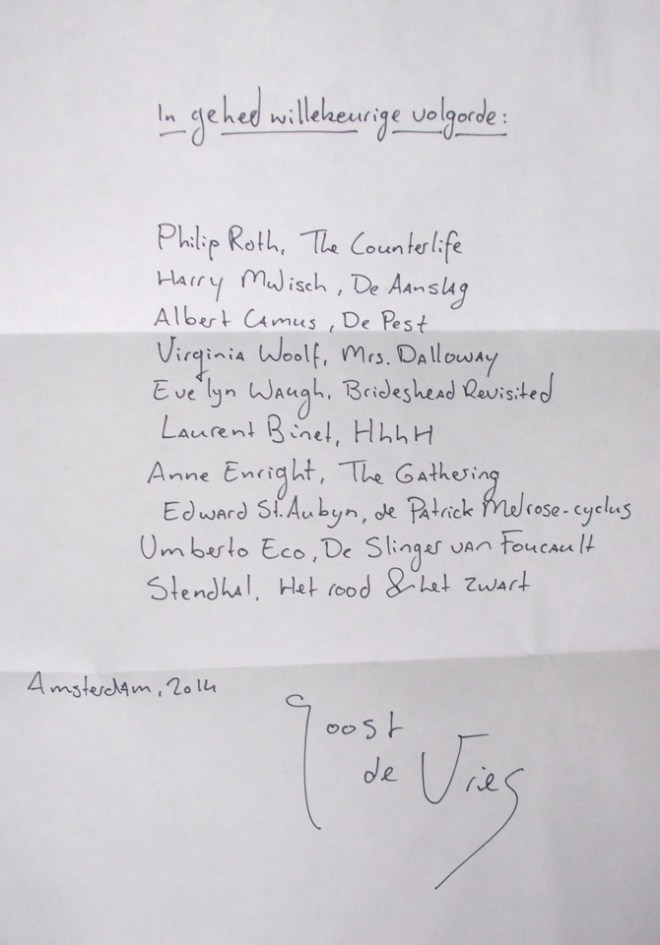 In geheel willekeurige volgorde:
Philip Roth, The Counterlife
Harry Mulisch, De Aanslag
Albert Camus, De Pest
Virginia Woolf, Mrs. Dalloway
Evelyn Waugh, Brideshead Revisited
Laurent Binet, HhhH
Anne Enright, The Gathering
Edward St. Aubyn, de Patrick Melrose-cyclus
Umberto Eco, De Slinger van Foucault
Stendhal, Het rood & het zwart
Amsterdam, 2014
Joost
de Vries